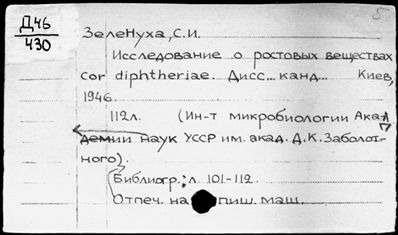 5
Д46
430
ЗелеНуха, С.И.
Исследование о ростовых веществах
Cor diphtheriae. Дисс... канд... Киев,
1946.
112л. (Ин-т микробиологии Ака
демии наук УССР им. акад. Д.К. Заболот-
ного).
Библиогр.: л. 101-112.
Отпеч. на пиш. маш.